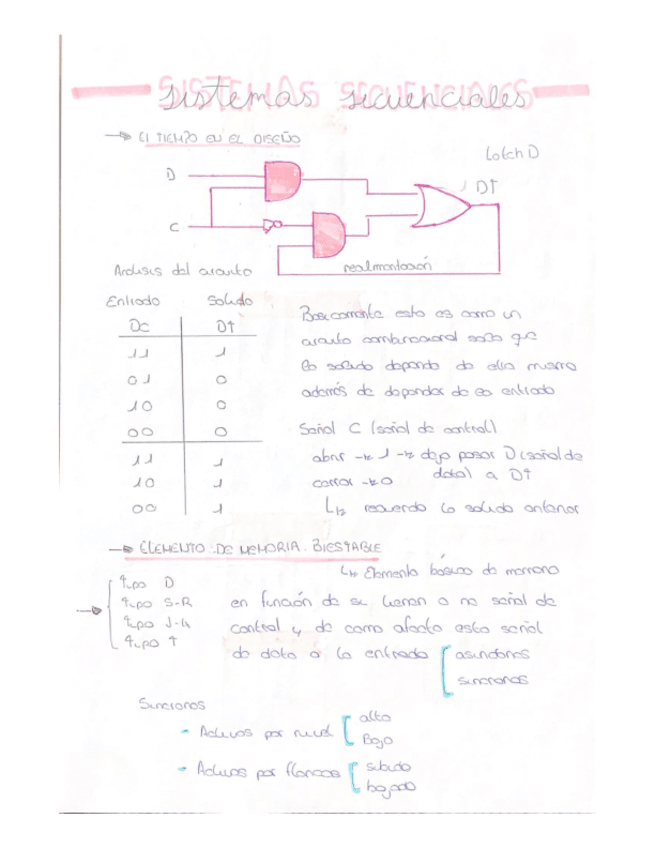 SISTEMAS SECUENCIALES
sistemas secuenciales
→ El TIEMPO EN EL DISEÑO
Latch D
D
D↑
C
realimentación
Analisis del circuito
Entrada Salida
DC D↑
11 1
01 0
10 0
00 0
11 1
10 1
00 1
Basicamente esto es como un
circuito combinacional solo que
la salida depende de ella misma
además de depender de la entrada
Señal C (señal de control)
abrir → 1 → deja pasar D (señal de
dato) a D↑
cerrar → 0
↳ recuerda la salida anterior
→ ELEMENTO DE MEMORIA. BIESTABLE
↳ Elemento básico de memoria
tipo D
tipo S-R
tipo J-K
tipo T
en función de si tienen o no señal de
control y de como afecta esta señal
de dato a la entrada
asíncronos
síncronos
Sincronos
- Activos por nivel
alto
Bajo
- Activos por flancos
subida
bajada